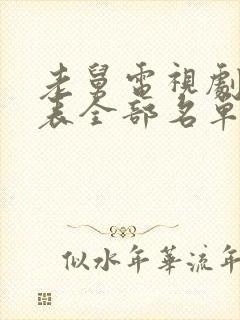 老舅電視劇
表全部名單
似水年華流年